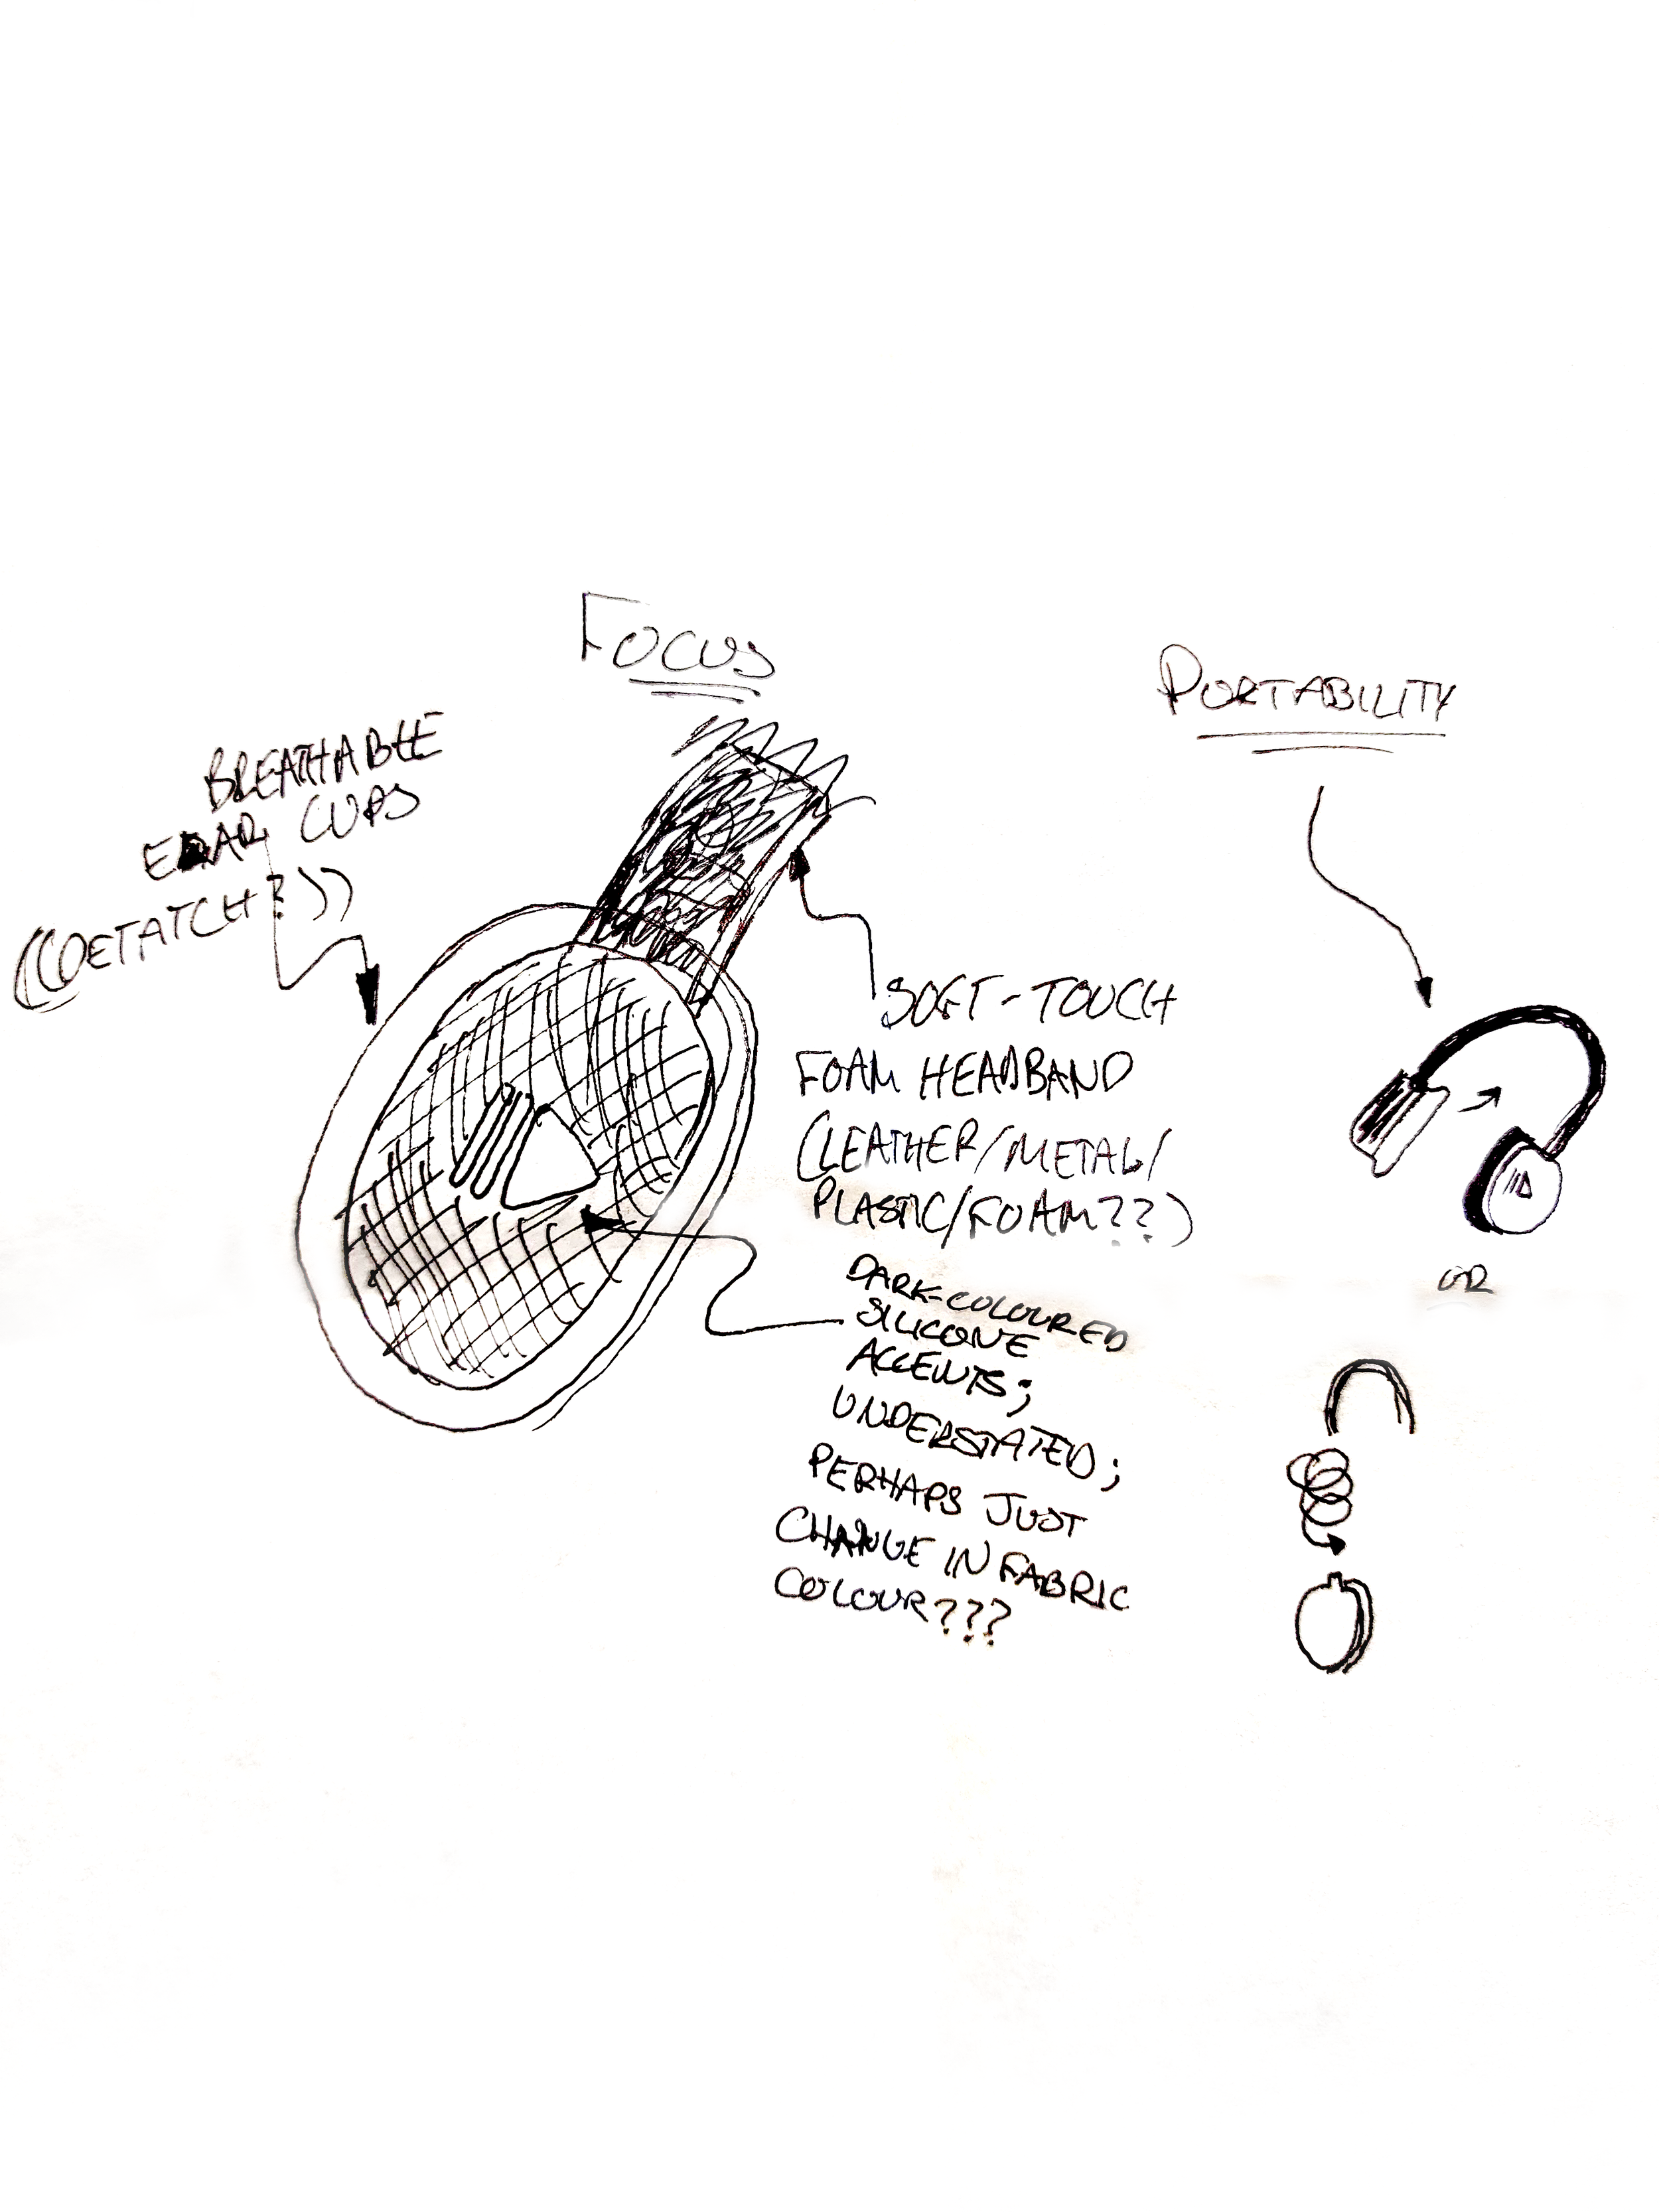 FOCUS
PORTABILITY
BREATHABLE
EAR CUPS
((DETATCH?))
SOFT-TOUCH
FOAM HEADBAND
(LEATHER/METAL/
PLASTIC/FOAM??)
DARK-COLOURED
SILICONE
ACCENTS;
UNDERSTATED;
PERHAPS JUST
CHANGE IN FABRIC
COLOUR???
OR